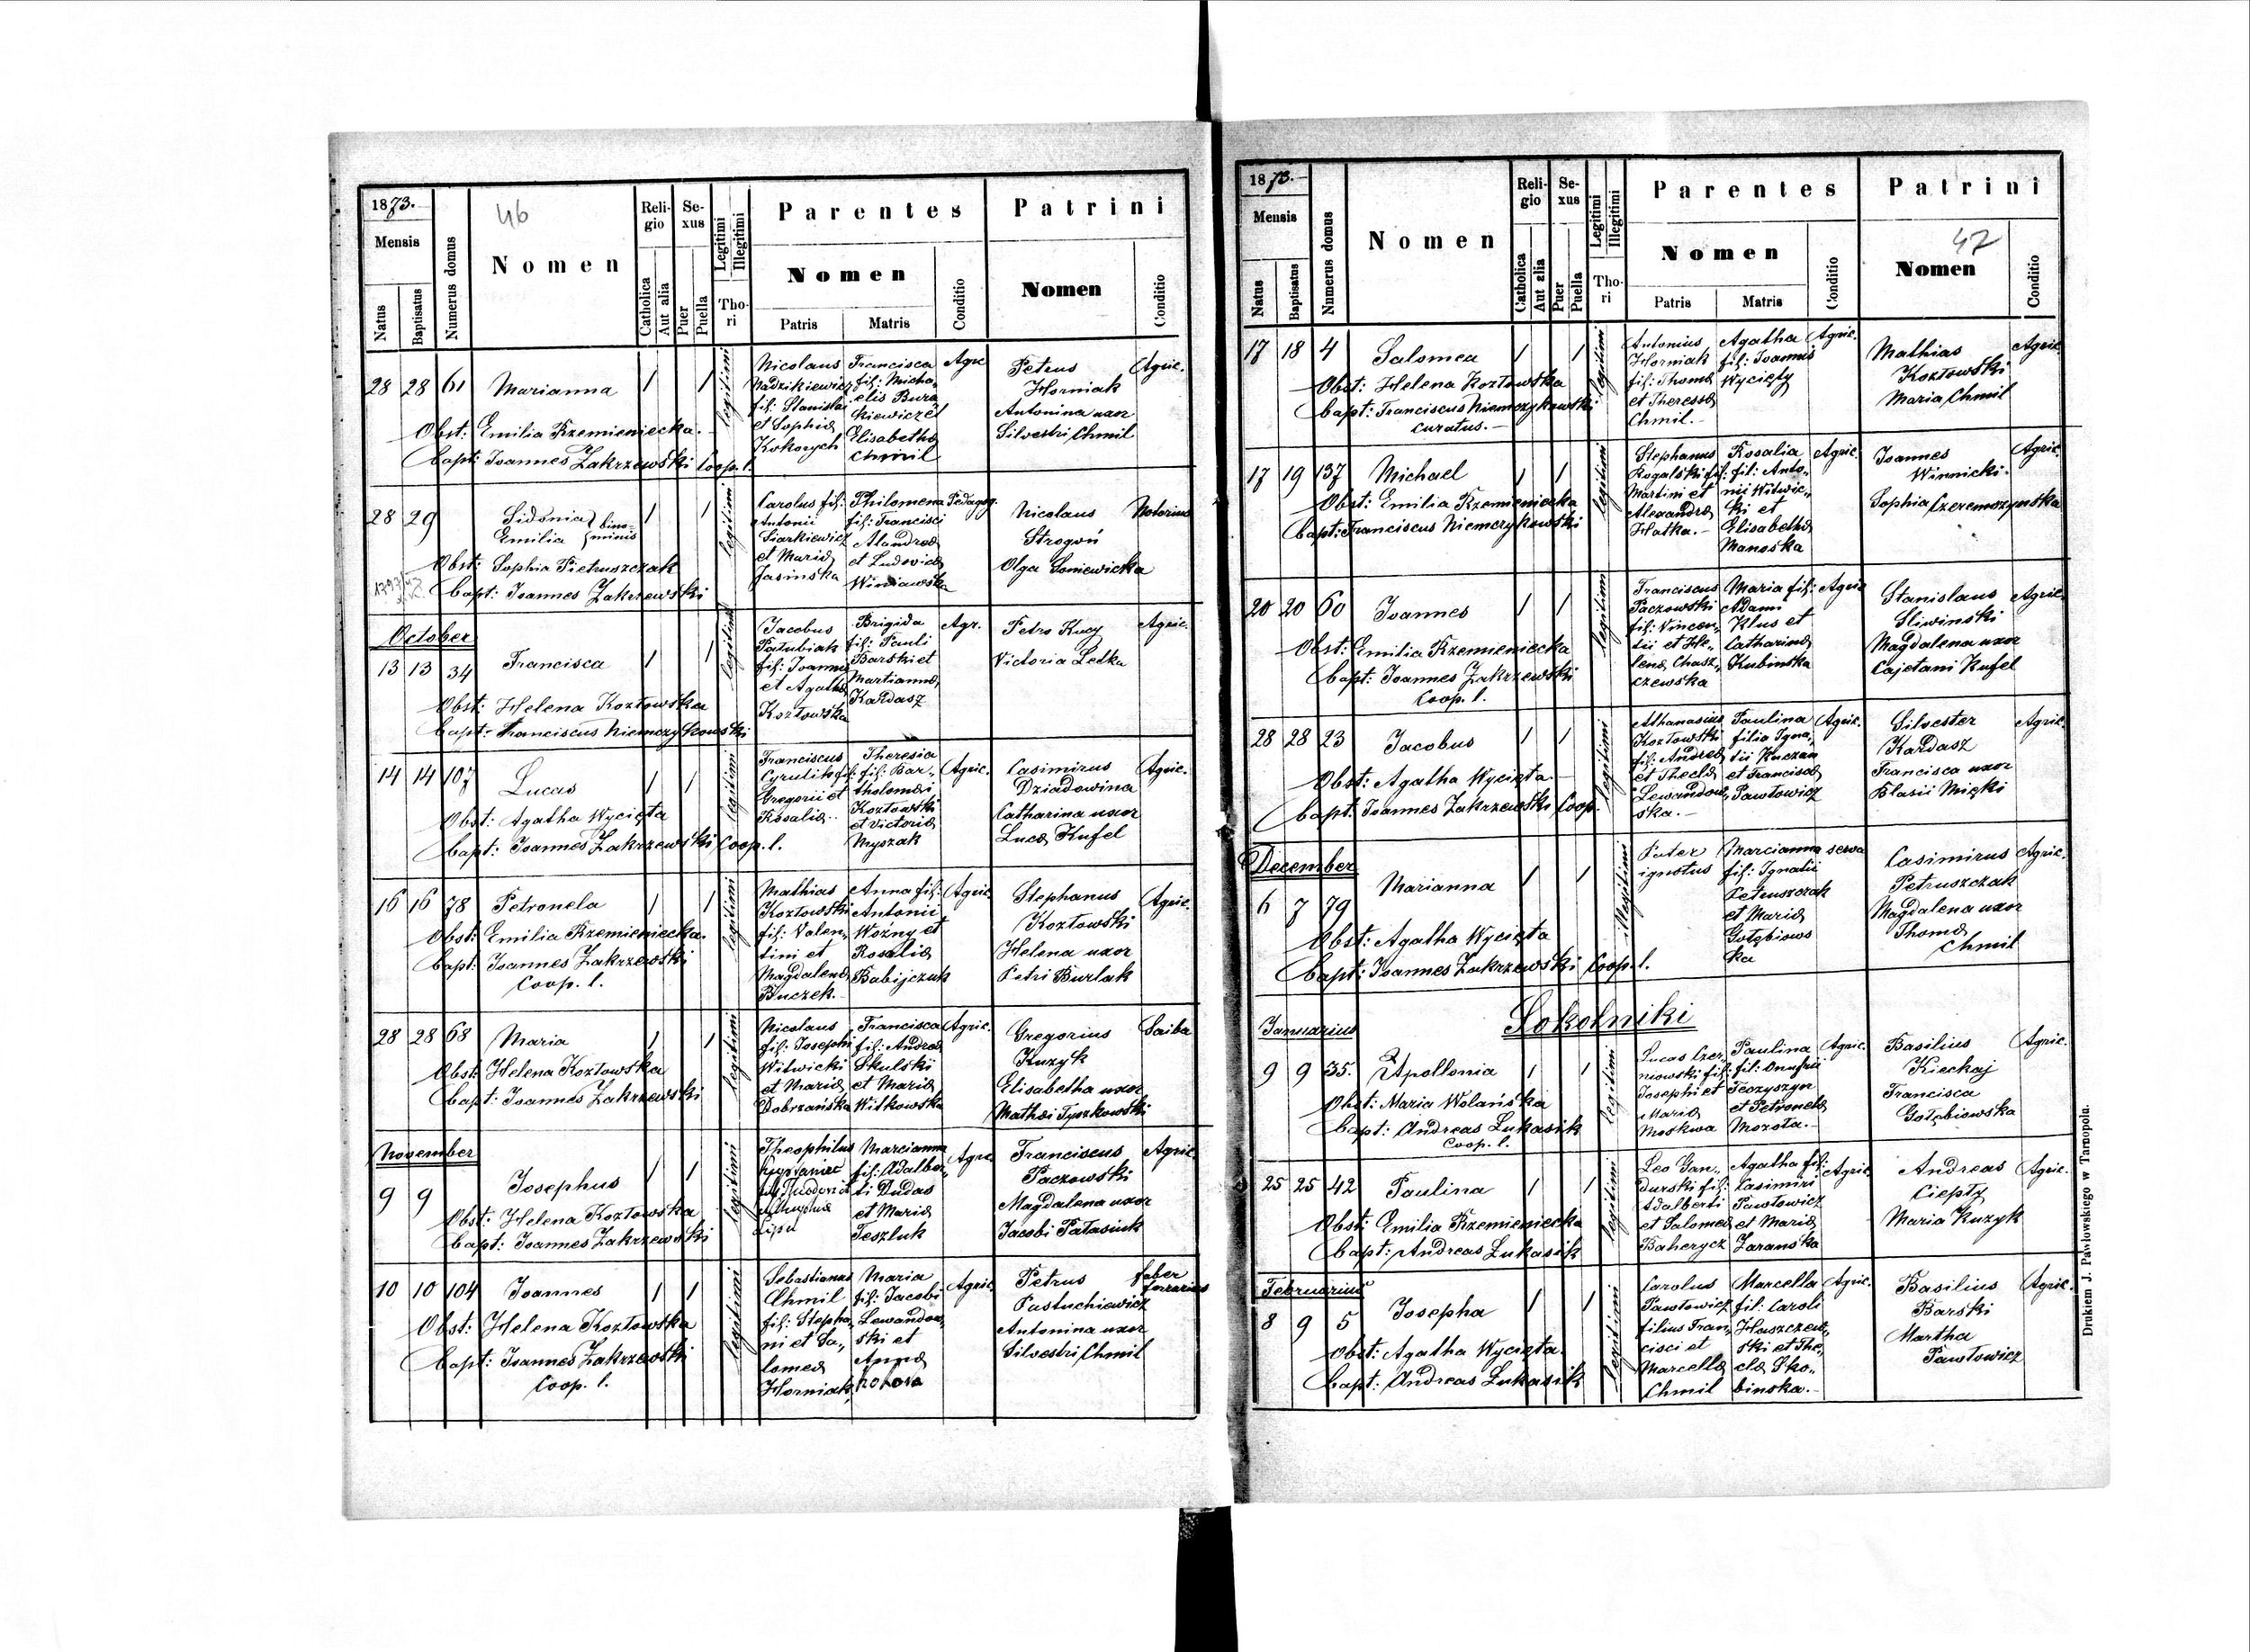 1873.
46
Mensis
Natus
Baptisatus
Numerus domus
Nomen
Religio
Catholica
Aut alia
Sexus
Puer
Puella
Legitimi
Illegitimi
Thori
Parentes
Nomen
Patris
Matris
Conditio
Patrini
Nomen
Conditio
28 28 61 Marianna 1 1 legitimi
Nicolaus
Nadzikiewicz
fil: Stanislai
et Sophiæ
Kokorych
Francisca
fil: Micha„
elis Bura
kiewicz et
Elisabethæ
Chmil
Agr.
Petrus
Horniak
Antonina uxor
Silvestri Chmil
Agric.
Obst: Emilia Krzemieniecka.
Bapt: Joannes Zakrzewski Coop. l.
28 29 Sidonia
Emilia } bino„
minis 1 1 legitimi
Carolus fil:
Antonii
Siarkiewicz
et Mariæ
Jasinska
Philomena
fil: Francisci
et Ludovicæ
Winiawska
Pedagog.
Nicolaus
Strogoń
Olga Soniewicka
Notarius
Obst: Sophia Pietruszczak
Bapt: Joannes Zakrzewski
October
13 13 34 Francisca 1 1 legitimi
Jacobus
Patubiak
fil: Joannis
et Agathæ
Kozłowska
Brigida
fil: Pauli
Barski et
Martiannæ
Kardasz
Agr.
Petro Kucy
Victoria Letka
Agric.
Obst: Helena Kozłowska
Bapt: Franciscus Niemczykowski
14 14 107 Lucas 1 1 legitimi
Franciscus
Cyrulik fil:
Gregorii et
Rosaliæ
Theresia
fil: Bar„
tholomæi
Kozłowski
et Victoriæ
Myszak
Agric.
Casimirus
Dziadowina
Catharina uxor
Lucæ Kufel
Agric.
Obst: Agatha Wycięta
Bapt: Joannes Zakrzewski Coop. l.
16 16 78 Petronela 1 1 legitimi
Mathias
Kozłowski
fil: Valen„
tini et
Magdalenæ
Buczek.
Anna fil:
Antonii
Woźny et
Rosaliæ
Babijczuk
Agric.
Stephanus
Kozłowski
Helena uxor
Petri Burlak
Agric.
Obst: Emilia Krzemieniecka.
Bapt: Joannes Zakrzewski
Coop. l.
28 28 68 Maria 1 1 legitimi
Nicolaus
fil: Josephi
Witwicki
et Mariæ
Dobrzańska
Francisca
fil: Andreæ
Skulski
et Mariæ
Witkowska
Agric.
Gregorius
Kuzyk
Elisabetha uxor
Mathæi Tyszkowski
Saiba
Obst: Helena Kozłowska
Bapt: Joannes Zakrzewski
November
9 9 Josephus 1 1 legitimi
Theophilus
Marcianna
fil: Adalber„
ti Dudas
et Mariæ
Teszluk
Agr.
Franciscus
Paczowski
Magdalena uxor
Jacobi Patasiuk
Agric.
Obst: Helena Kozłowska
Bapt: Joannes Zakrzewski
10 10 104 Joannes 1 1 legitimi
Sebastianus
Chmil
fil: Stepha„
ni et Sa„
lomeæ
Horniak
Maria
fil: Jacobi
Lewandow„
ski et
Annæ
Agric.
Petrus
Pastuchiewicz
Antonina uxor
Silvestri Chmil
faber
ferrarius
Obst: Helena Kozłowska
Bapt: Joannes Zakrzewski
Coop. l.
1873.
47
Mensis
Natus
Baptisatus
Numerus domus
Nomen
Religio
Catholica
Aut alia
Sexus
Puer
Puella
Legitimi
Illegitimi
Thori
Parentes
Nomen
Patris
Matris
Conditio
Patrini
Nomen
Conditio
17 18 4 Salomea 1 1 legitimi
Antonius
Horniak
fil: Thomæ
et Theressæ
Chmil.
Agatha
fil: Joannis
Wycięty
Agric.
Mathias
Kozłowski
Maria Chmil
Agric.
Obst: Helena Kozłowska
Bapt: Franciscus Niemczykowski
curatus.
17 19 137 Michael 1 1 legitimi
Stephanus
Rogalski fil:
Martini et
Alexandræ
Hatka.
Rosalia
fil: Anto„
nii Witwic„
ki et
Elisabethæ
Manoska
Agric.
Joannes
Winnicki.
Sophia Czeremszynska
Agric.
Obst: Emilia Krzemieniecka
Bapt: Franciscus Niemczykowski
20 20 60 Joannes 1 1 legitimi
Franciscus
Paczowski
fil: Vincen„
tii et He„
lenæ Chasz„
czewska
Maria fil:
Adami
Klus et
Catharinæ
Kubinska
Agric
Stanislaus
Sliwinski
Magdalena uxor
Cajetani Kufel
Agric.
Obst: Emilia Krzemieniecka
Bapt: Joannes Zakrzewski
Coop. l.
28 28 23 Jacobus 1 1 legitimi
Athanasius
Kozłowski
fil: Andreæ
et Theclæ
Lewandow„
ska.
Paulina
filia Igna„
tii Kuczan
et Franciscæ
Pawłowicz
Agric.
Silvester
Kardasz
Francisca uxor
Blasii Mięki
Agric.
Obst: Agatha Wycięta
Bapt: Joannes Zakrzewski Coop.
December
6 7 79 Marianna 1 1 illegitimi
Pater
ignotus
Marcianna
fil: Ignatii
Petruszczak
et Mariæ
Gołębiows
ka
serva
Casimirus
Petruszczak
Magdalena uxor
Thomæ
Chmil
Agric.
Obst: Agatha Wycięta
Bapt: Joannes Zakrzewski Coop. l.
Sokolniki
Januarius
9 9 35. Apollonia 1 1 legitimi
Lucas Czer„
niowski fil:
Josephi et
Mariæ
Moskwa
Paulina
fil: Onufrii
Teczyszyn
et Petronelæ
Mozota.
Agric.
Basilius
Kieckaj
Francisca
Gołębiowska
Agric.
Obst: Maria Wolańska
Bapt: Andreas Łukasik
Coop. l.
25 25 42 Paulina 1 1 legitimi
Leo Gan„
durski fil:
Adalberti
et Salomeæ
Baherycz
Agatha fil:
Casimiri
Pawłowicz
et Mariæ
Zaranska
Agric.
Andreas
Ciepły
Maria Kuzyk
Agric.
Obst: Emilia Krzemieniecka
Bapt: Andreas Łukasik
Februarius
8 9 5 Josepha 1 1 legitimi
Carolus
Pawłowicz
filius Fran„
cisci et
Marcellæ
Chmil
Marcella
fil: Caroli
Haszczew„
ski et The„
clæ Sko„
binska.
Agric.
Basilius
Barski
Martha
Pawłowicz
Agric.
Obst: Agatha Wycięta.
Bapt: Andreas Łukasik
Drukiem J. Pawłowskiego w Tarnopolu.